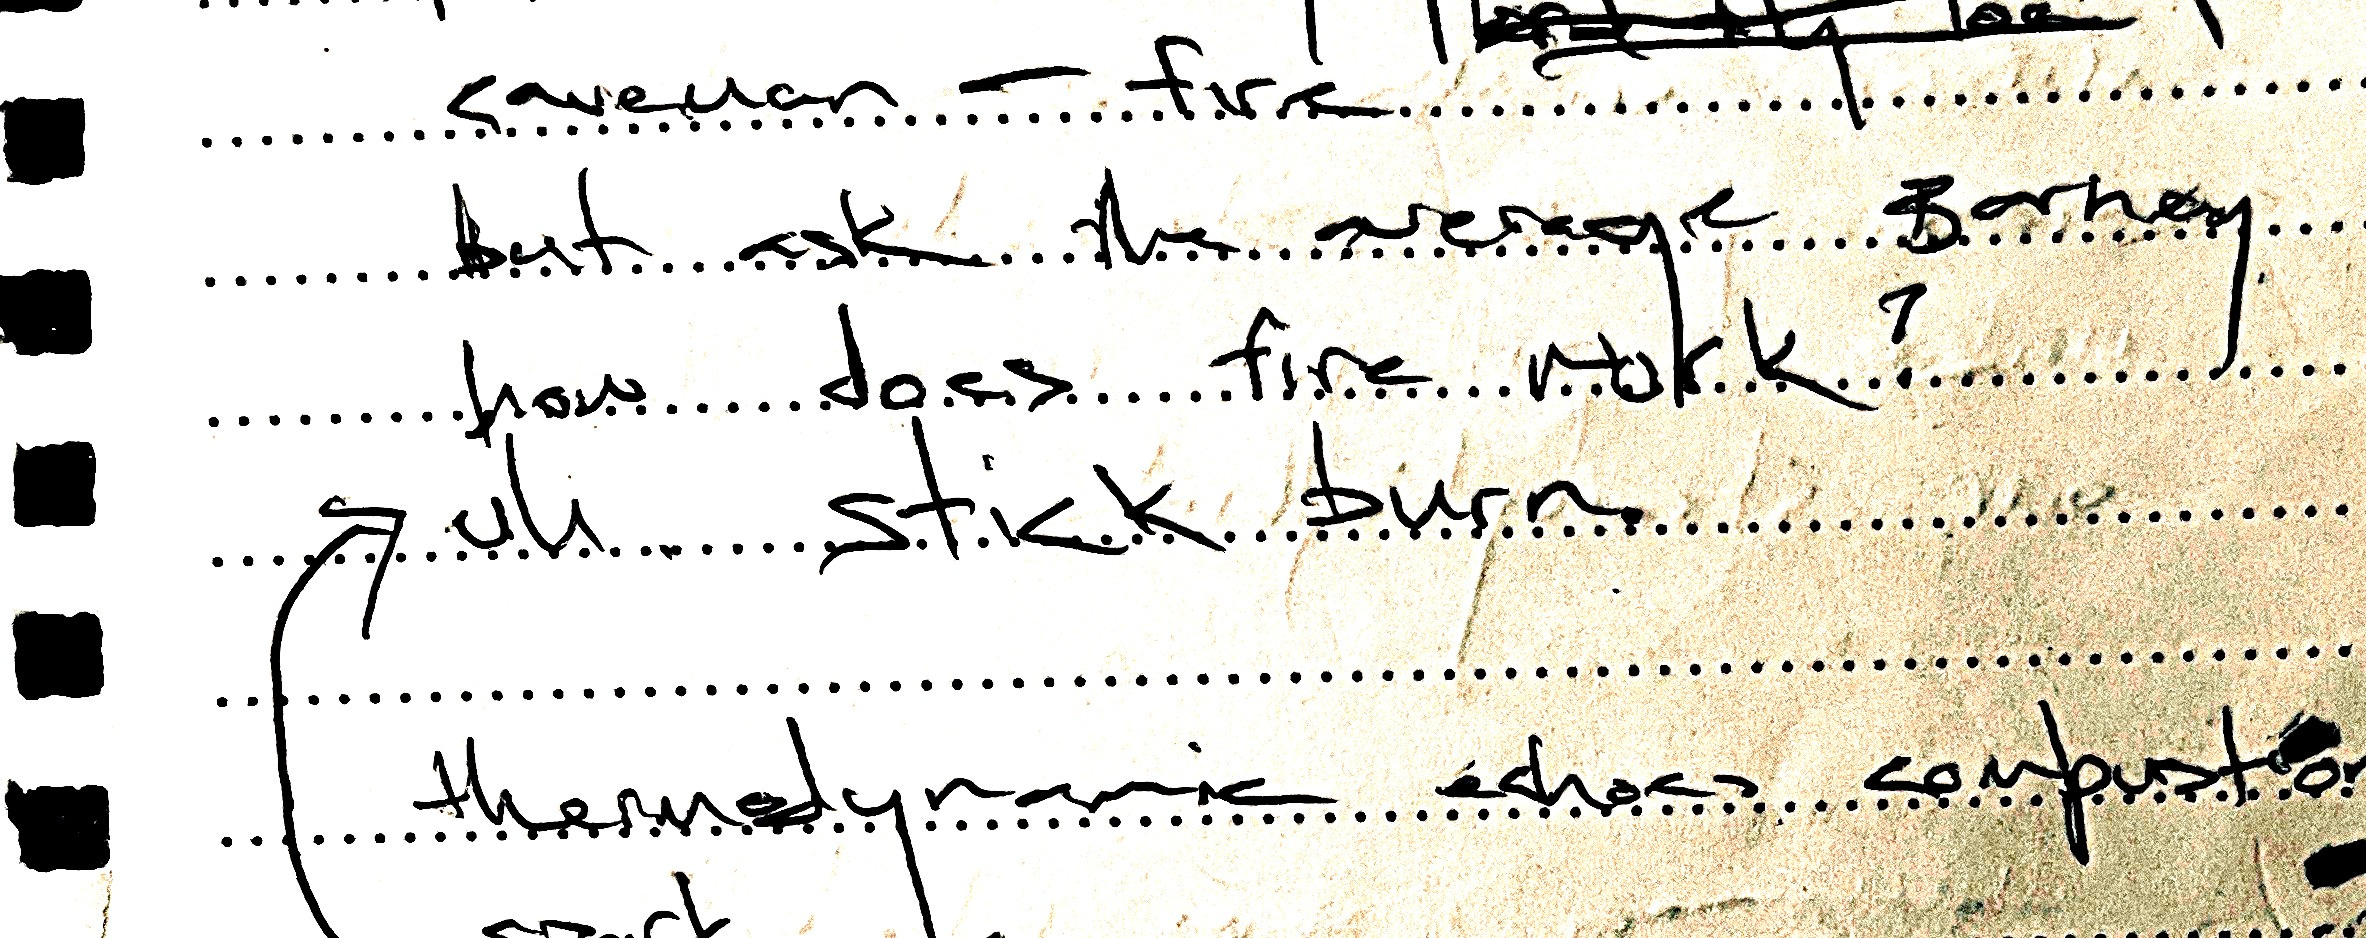 caveman — fire
But ask the average Barney
how does fire work?
uh.. stick burn.
thermodynamic echoes compustion
spark